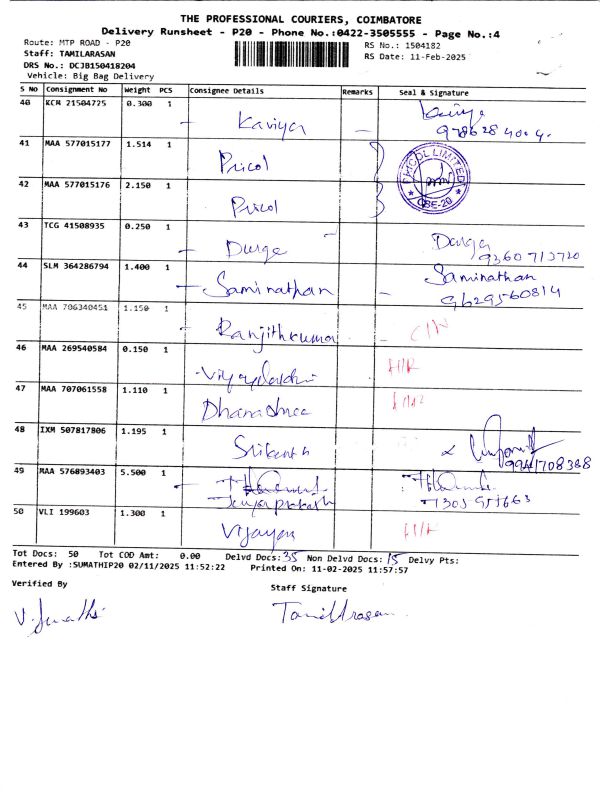 THE PROFESSIONAL COURIERS, COIMBATORE
Delivery Runsheet - P20 - Phone No.:0422-3505555 - Page No.:4
Route: MTP ROAD - P20 RS No.: 1504182
Staff: TAMILARASAN RS Date: 11-Feb-2025
DRS No.: DCJB150418204
Vehicle: Big Bag Delivery
S No Consignment No Weight PCS Consignee Details Remarks Seal & Signature
40 KCM 21504725 0.300 1 Kaviya
41 MAA 577015177 1.514 1 Pricol PRICOL LIMITED CBE-20
42 MAA 577015176 2.150 1 Pricol
43 TCG 41508935 0.250 1 Durga Durga 9360713720
44 SLM 364286794 1.400 1 Saminathan Saminathan 9629560814
45 MAA 706340451 1.150 1 Ranjithkumar
46 MAA 269540584 0.150 1
47 MAA 707061558 1.110 1
48 IXM 507817806 1.195 1 Srikanth
49 MAA 576893403 5.500 1 Jeyaprakash
50 VLI 199603 1.300 1 Vijayan
Tot Docs: 50 Tot COD Amt: 0.00 Delvd Docs: 35 Non Delvd Docs: 15 Delvy Pts:
Entered By :SUMATHIP20 02/11/2025 11:52:22 Printed On: 11-02-2025 11:57:57
Verified By Staff Signature
V. Sumathi Tamilarasan